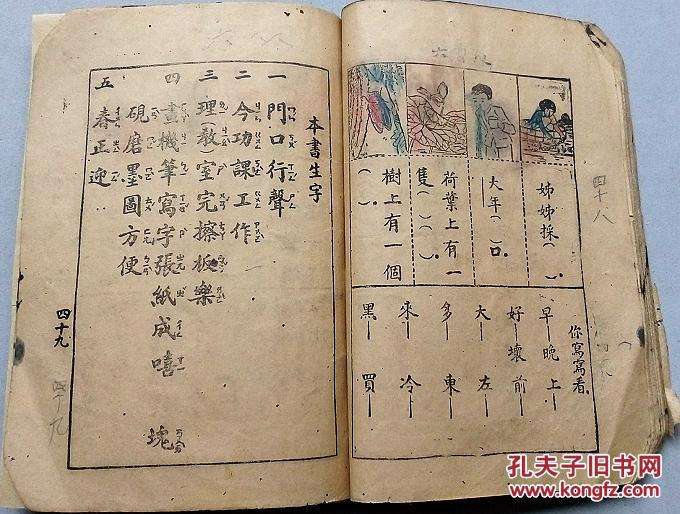 姊姊採( )。
大年( )口。
荷葉上有一
隻( )( )。
樹上有一個
( )。
你寫寫看
早—晚 上—
好—壞 前—
大— 左—
多— 東—
來— 冷—
黑— 買—
四十八
本書生字
一 門口行聲
二 今功課工作
三 理(教)室完擦板樂
四 畫機筆寫字張紙成嘻 塊
硯磨墨圖方便
五 春正迎
四十九
四十九
孔夫子旧书网
www.kongfz.com